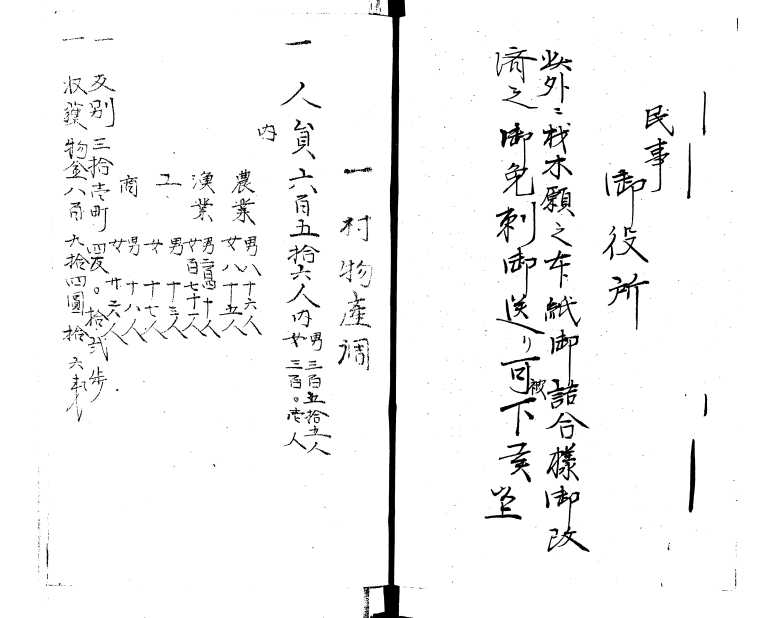 民事
御役所
此外ニ材木願之本紙御詰合様御改
済之御免判御送り可被下奕以上
一村物産調
一人員六百五拾六人内男三百五拾五人
女三百〇壱人
内
農業男八十六人
女八十五人
漁業男二百四十人
女百七十一人
工男十三人
女十七人
商男十八人
女廿六人
一反別三拾壱町四反〇拾弐歩
一収獲物金八百九拾四圓拾六銭